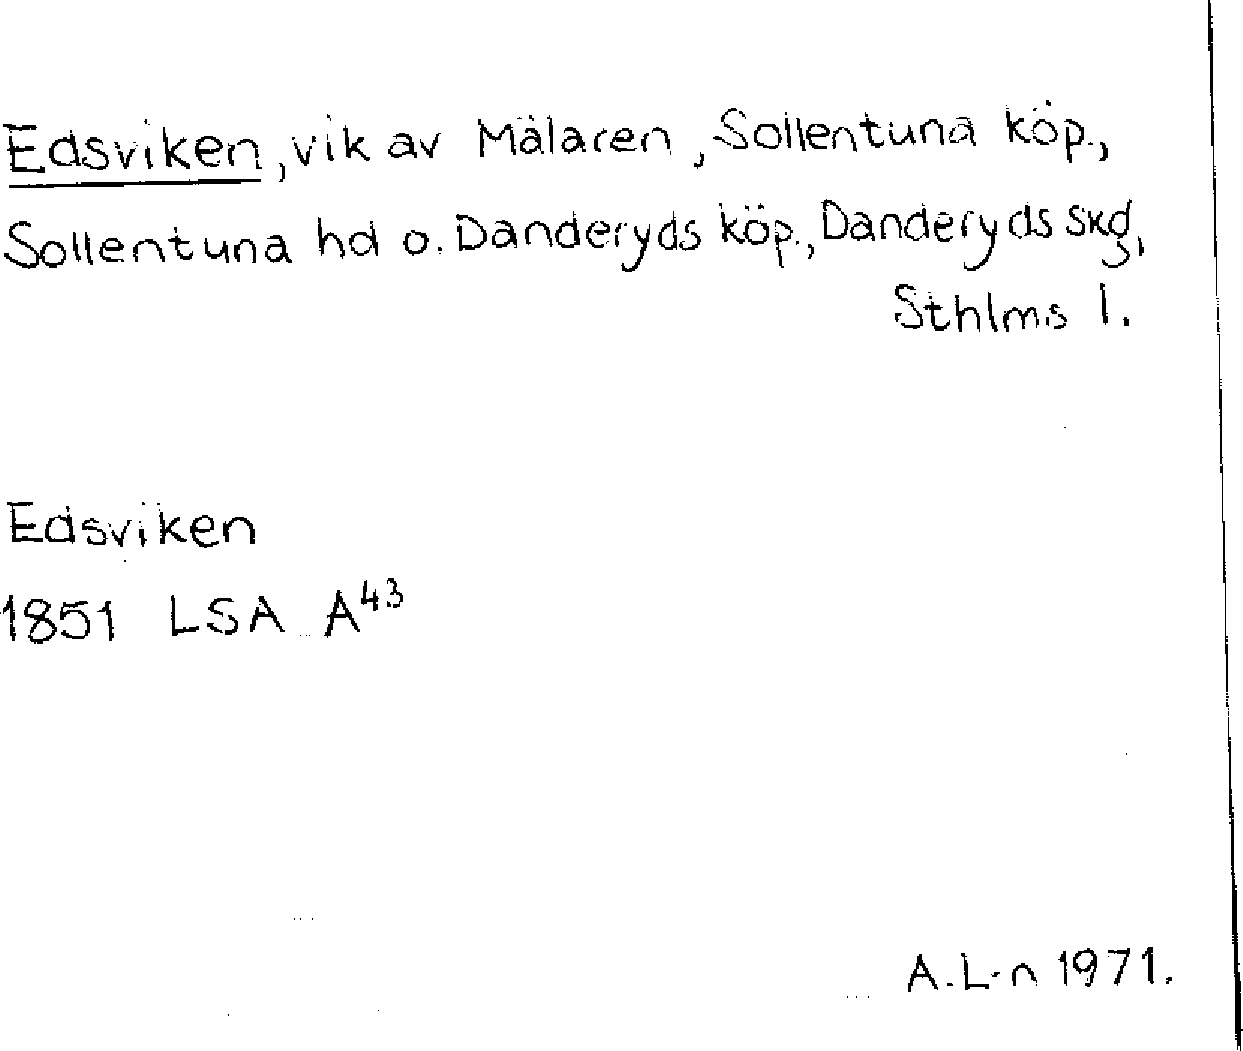 Edsviken, vik av Mälaren, Sollentuna köp.,
Sollentuna hd o. Danderyds köp., Danderyds skg,
Sthlms l.
Edsviken
1851 LSA A⁴³
A.L-n 1971.